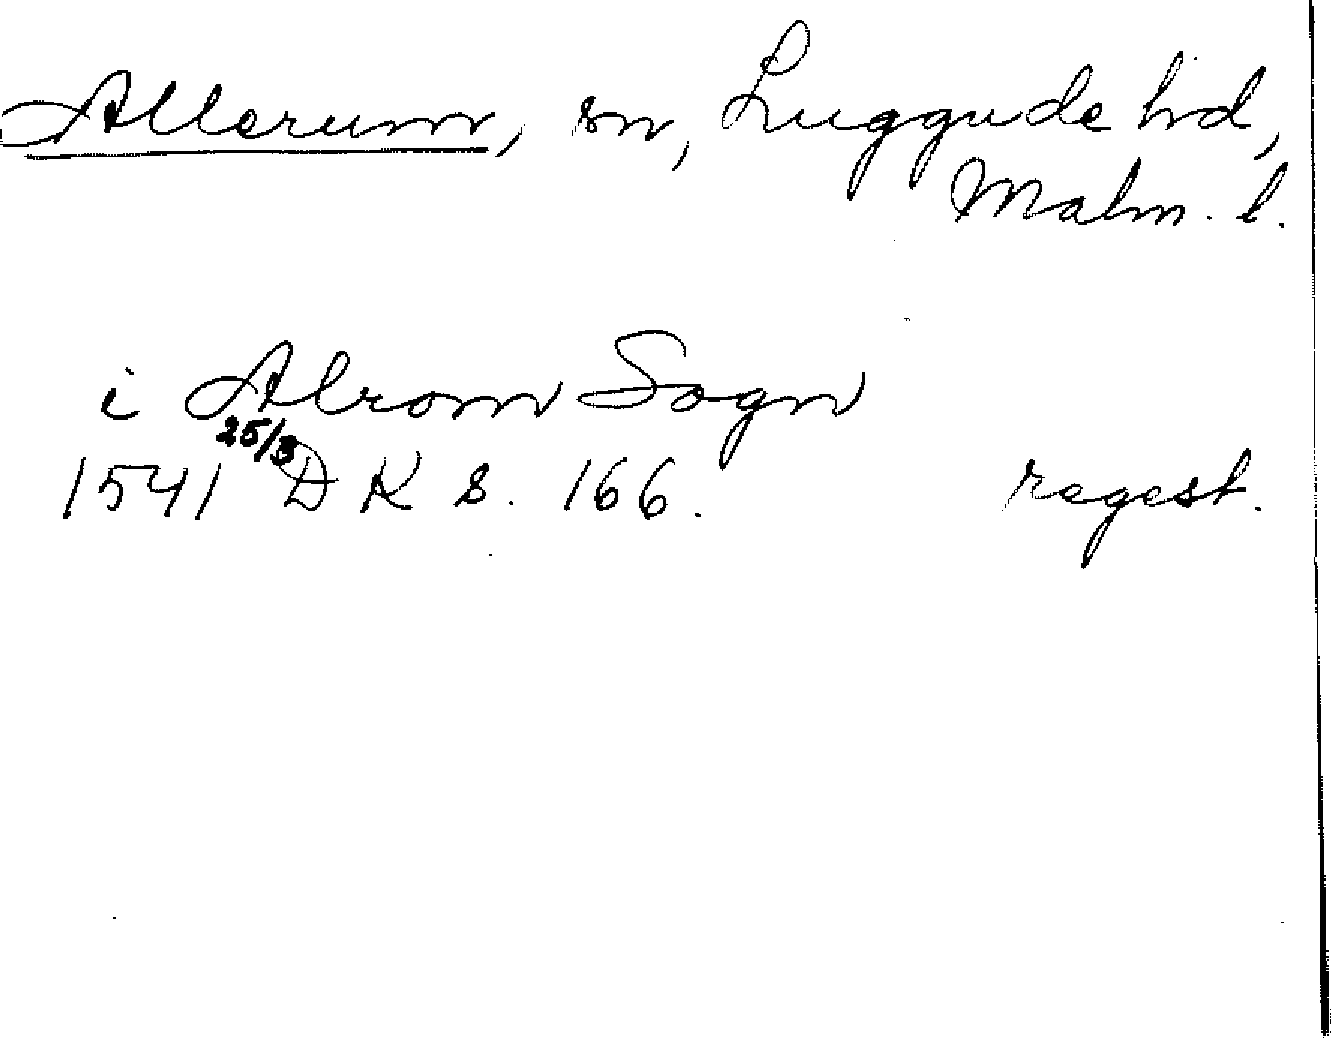 Allerum, sn, Luggude hd,
Malm. l.
i Alrom Sogn
1541 25/3 DK s. 166. regest.